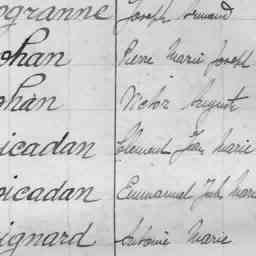 ogranne Joseph Armand
ohan Pierre Marie Joseph
ohan Victor August
icadan Clément Jean Marie
icadan Emmanuel Marie
ignard Antoine Marie